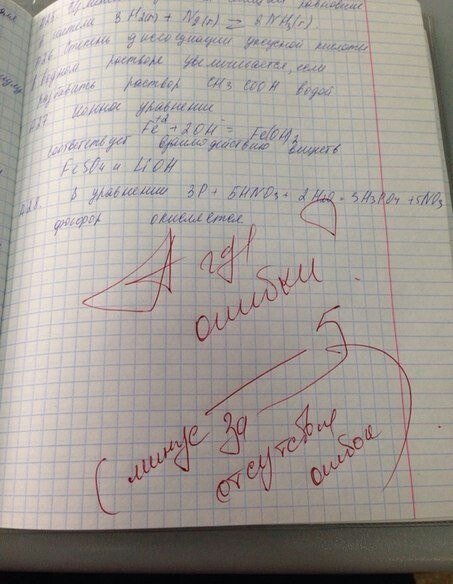 системе 3H2(г) + N2(г) = 2NH3(г)
A26 Степень диссоциации уксусной кислоты
в водном растворе увеличивается, если
разбавить раствор CH3COOH водой
A27 Ионное уравнение
Fe+2 + 2OH- = Fe(OH)2
соответствует взаимодействию веществ
FeSO4 и LiOH
A28 В уравнении 3P + 5HNO3 + 2H2O = 3H3PO4 + 5NO
фосфор окисляется
А где
ошибки
5
(минус за
отсутствие
ошибок